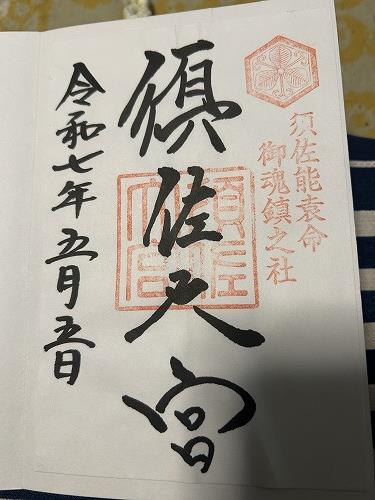 須佐能袁命
御魂鎮之社
須佐大宮
須佐
大宮
令和七年五月五日